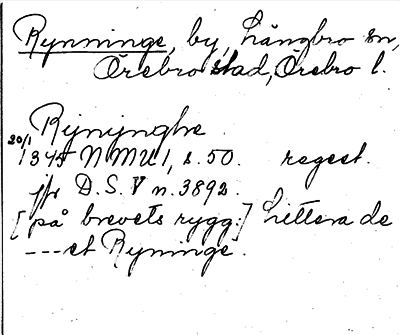 Rynninge, by, Långbro sn,
Örebro stad, Örebro l.
Rijnijnghe
20/1 1345 NMU 1, s. 50. regest.
jfr D.S.V n. 3892.
[på brevets rygg:] Littera de
---et Ryninge.